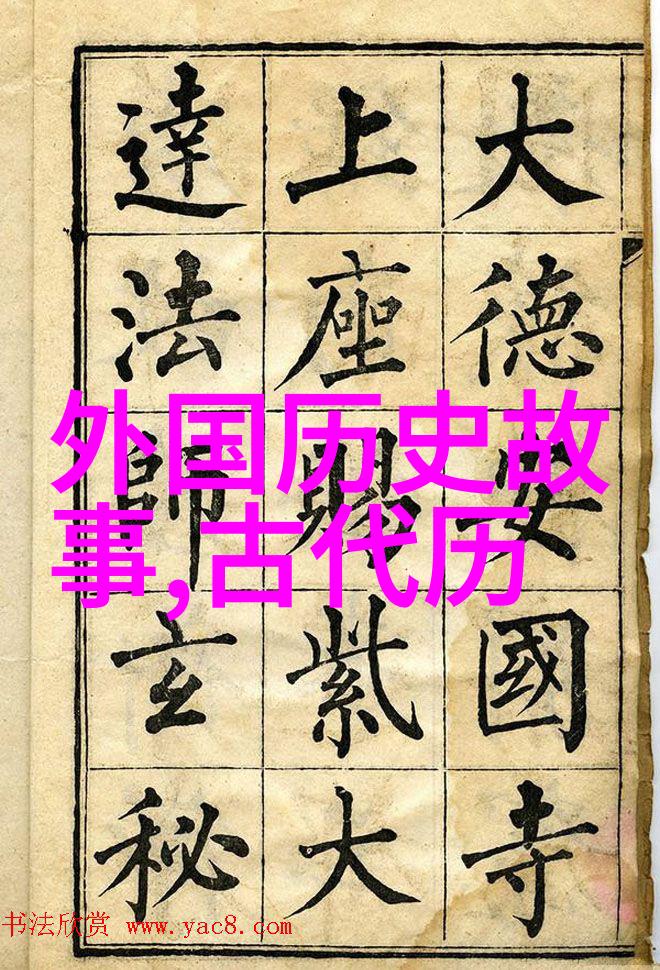 大德安國寺
上座賜紫大
達法師玄秘
外国历史故
事,古代历
书法欣赏 www.yac8.com